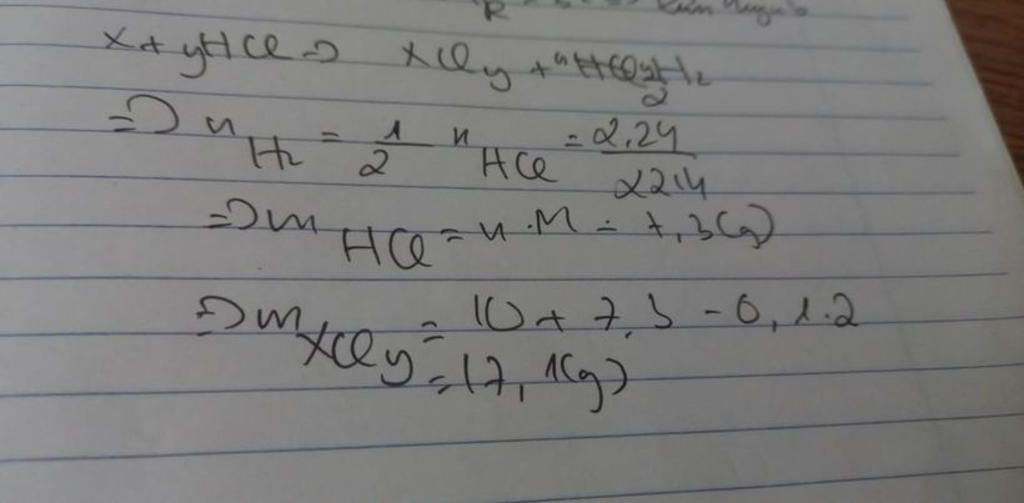 R
X + yHCl => XCly + y/2 H2
=> nH2 = 1/2 nHCl = 2,24/22,4
=> mHCl = n.M = 7,3(g)
=> mXCly = 10 + 7,3 - 0,1.2
= 17,1(g)